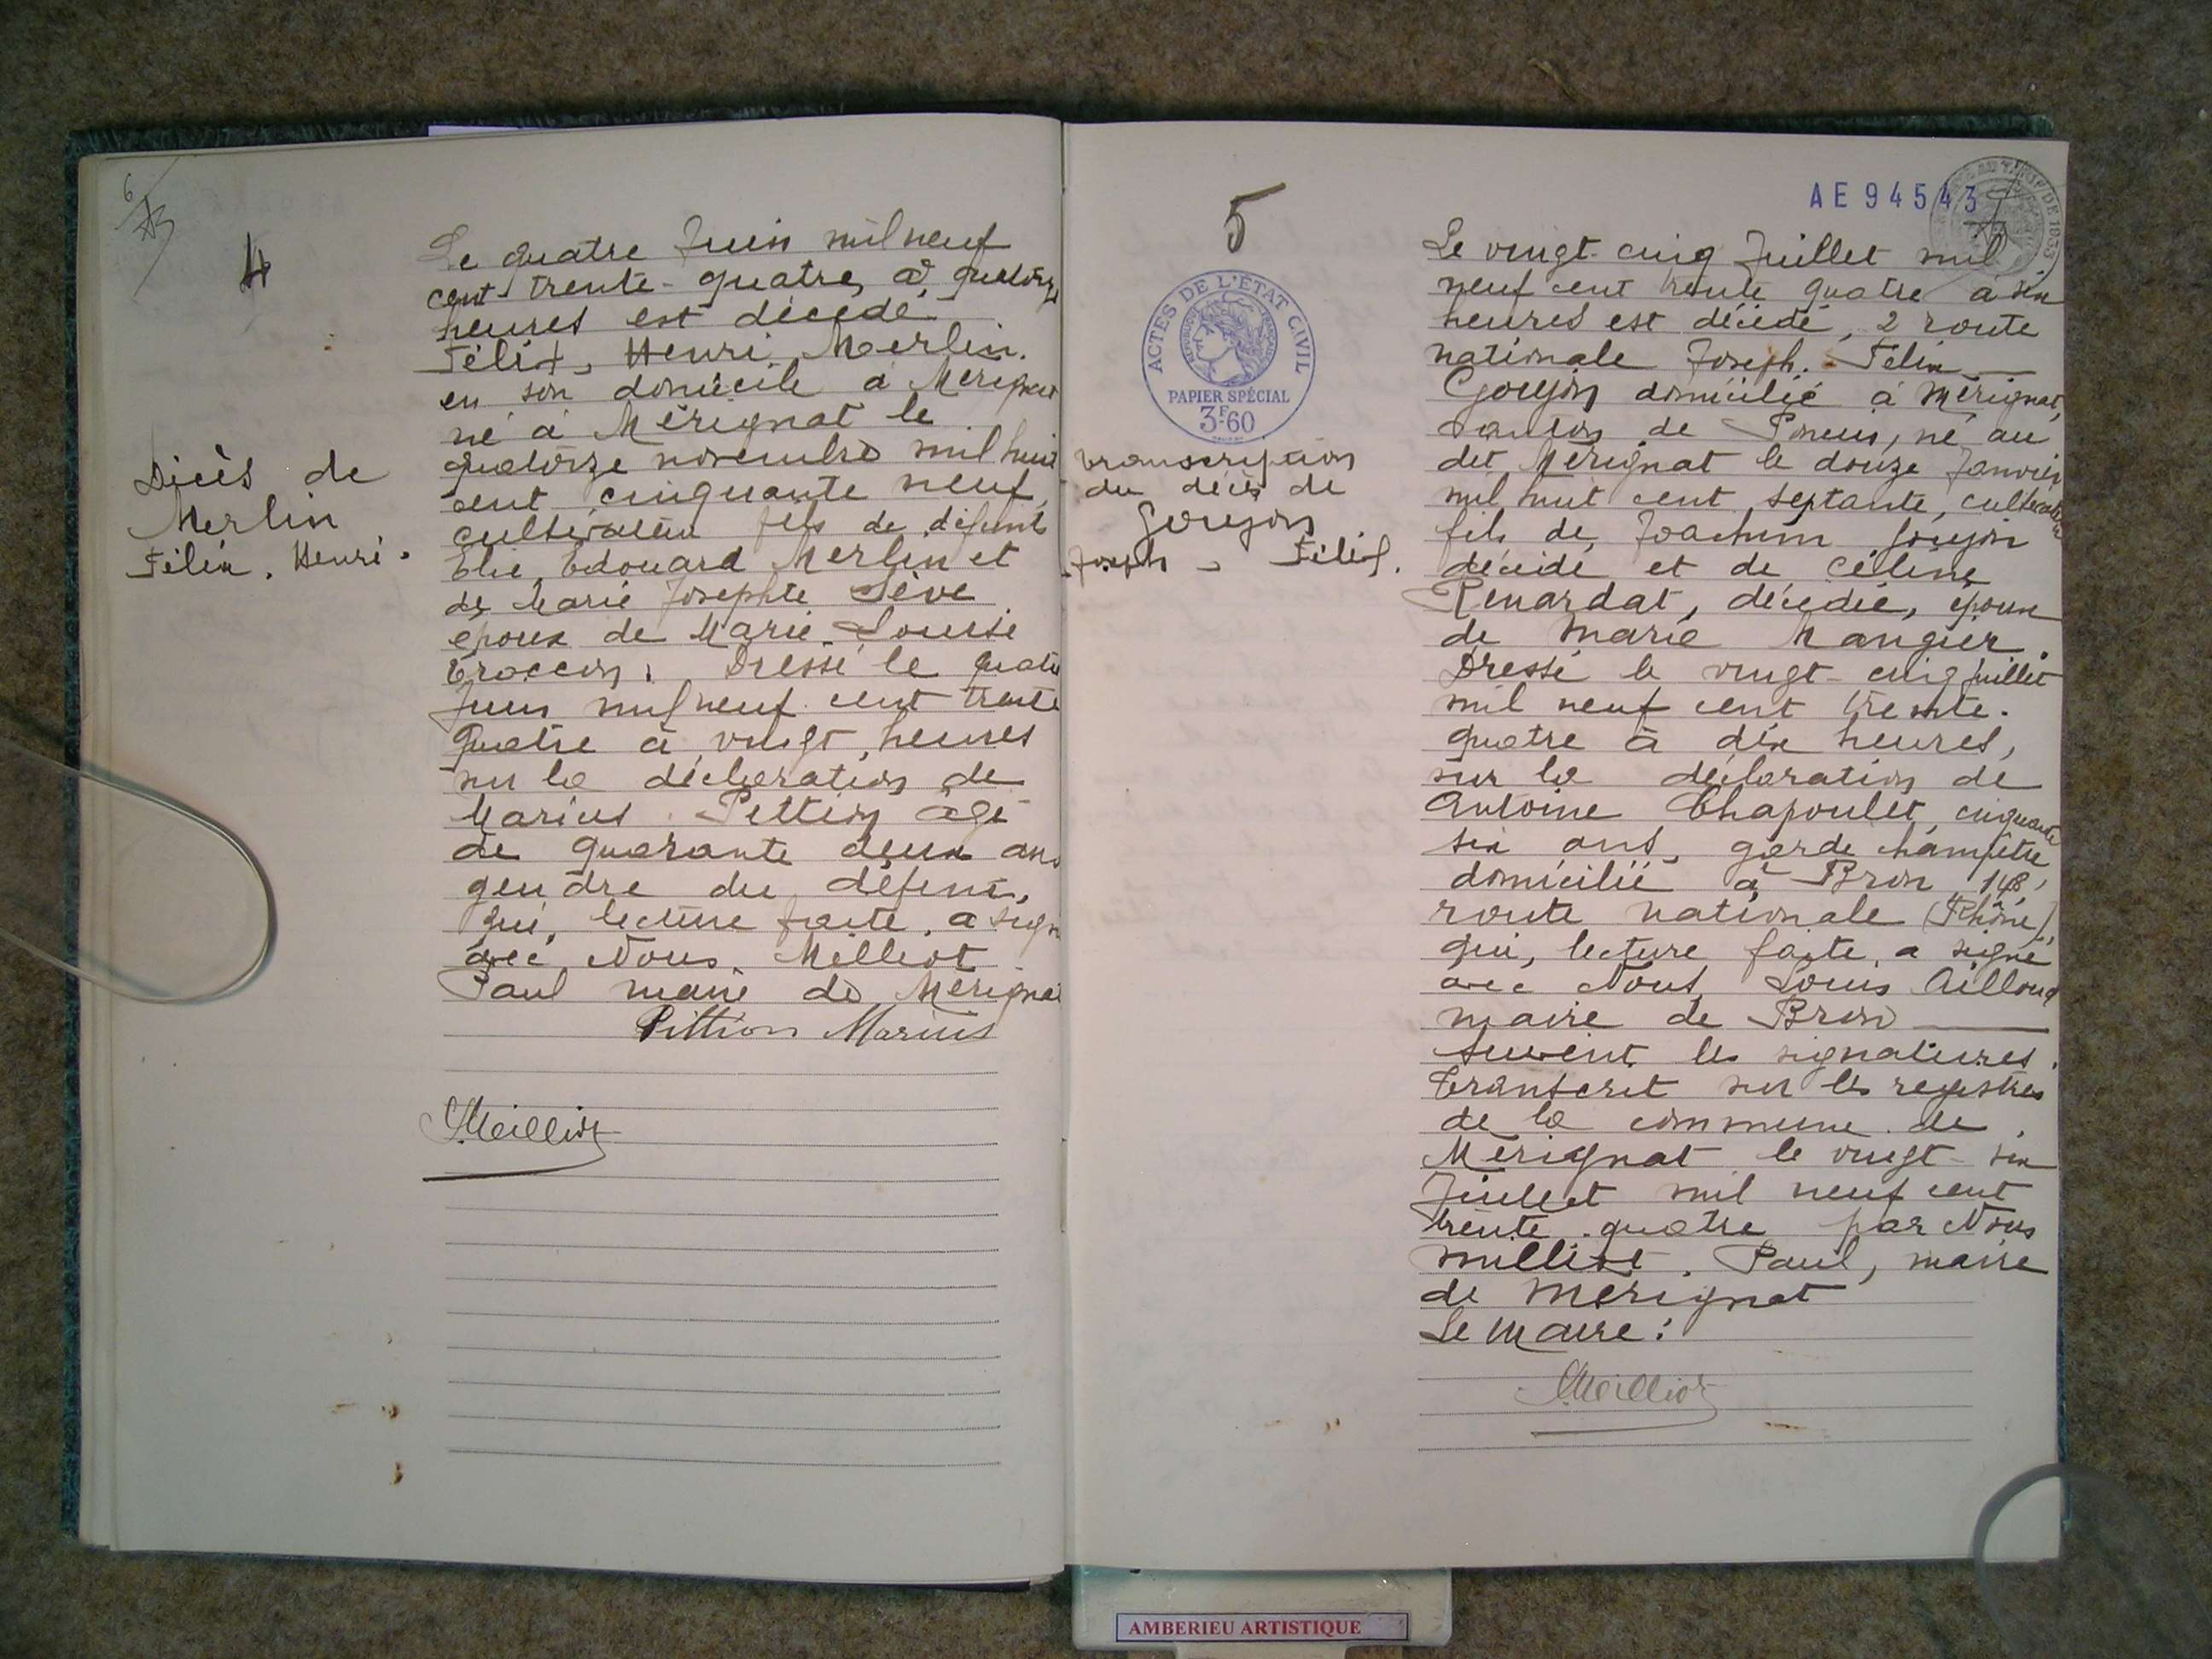 6
4
Décès de
Merlin
Félix, Henri.
Le quatre Juin mil neuf
cent trente-quatre, à quatorze
heures est décédé
Félix, Henri Merlin.
en son domicile à Mérignat
né à Mérignat le
quatorze novembre mil huit
cent cinquante neuf,
cultivateur fils de défunt
Elie, Edouard Merlin et
de Marie Josephte Sève
époux de Marie-Louise
Troccon. Dressé le quatre
Juin mil neuf cent trente
quatre à vingt heures
sur la déclaration de
Marius Pittion âgé
de quarante deux ans
gendre du défunt,
qui, lecture faite, a signé
avec Nous, Milliot
Paul maire de Mérignat
Pittion Marius
Milliot
5
ACTES DE L'ÉTAT CIVIL
RÉPUBLIQUE FRANÇAISE
PAPIER SPÉCIAL
3F60
transcription
du décès de
Goujon
Joseph - Félix.
AE 94543
Le vingt-cinq Juillet mil
neuf cent trente quatre à six
heures est décédé, 2 route
nationale Joseph. Félix
Goujon domicilié à Mérignat,
canton de Poncin, né au
dit Mérignat le douze Janvier
mil huit cent septante, cultivateur
fils de Joachim Goujon
décédé et de Céline
Renardat, décédée, époux
de Marie Mangier.
Dressé le vingt-cinq juillet
mil neuf cent trente.
quatre à dix heures,
sur la déclaration de
Antoine Chapoulet, cinquante
six ans, garde champêtre
domicilié à Bron 148,
route nationale (Rhône),
qui, lecture faite, a signé
avec Nous, Louis Ailloud
maire de Bron
Suivent les signatures.
Transcrit sur les registres
de la commune de
Mérignat le vingt-six
Juillet mil neuf cent
trente quatre par Nous
Milliot, Paul, maire
de Mérignat
Le Maire:
Milliot
AMBERIEU ARTISTIQUE